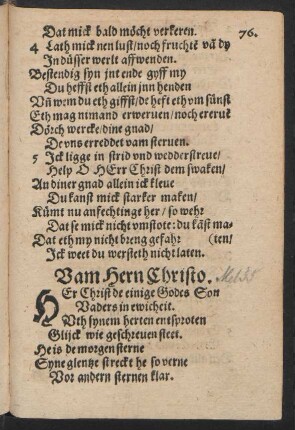 Dat mick bald möcht verkeren. 76.
4 Lath mick nen lust/noch fruchtē vā dy
In düsser werlt affwenden.
Bestendig syn jnt ende gyff my
Du heffst eth allein jnn henden
Vñ wem du eth giffst/de heft eth vm sünst
Eth mag nimand erweruen/noch ererue
Dörch wercke/dine gnad/
De vns erreddet vam steruen.
5 Jck ligge in strid vnd wedderstreue/
Help O HErr Christ dem swaken/
An diner gnad allein ick kleue
Du kanst mick starker maken/
Kümt nu anfechtinge her/so wehr
Dat se mick nicht vmstote: du käst ma-
Dat eth my nicht breng gefahr (ten/
Jck weet du wersteth nicht laten.
Vam Hern Christo.
HEr Christ de einige Godes Son
Vaders in ewicheit.
Vth synem herten entsproten
Glijck wie geschreuen steet.
He is de morgensterne
Syne glentze streckt he so verne
Vor andern sternen klar.